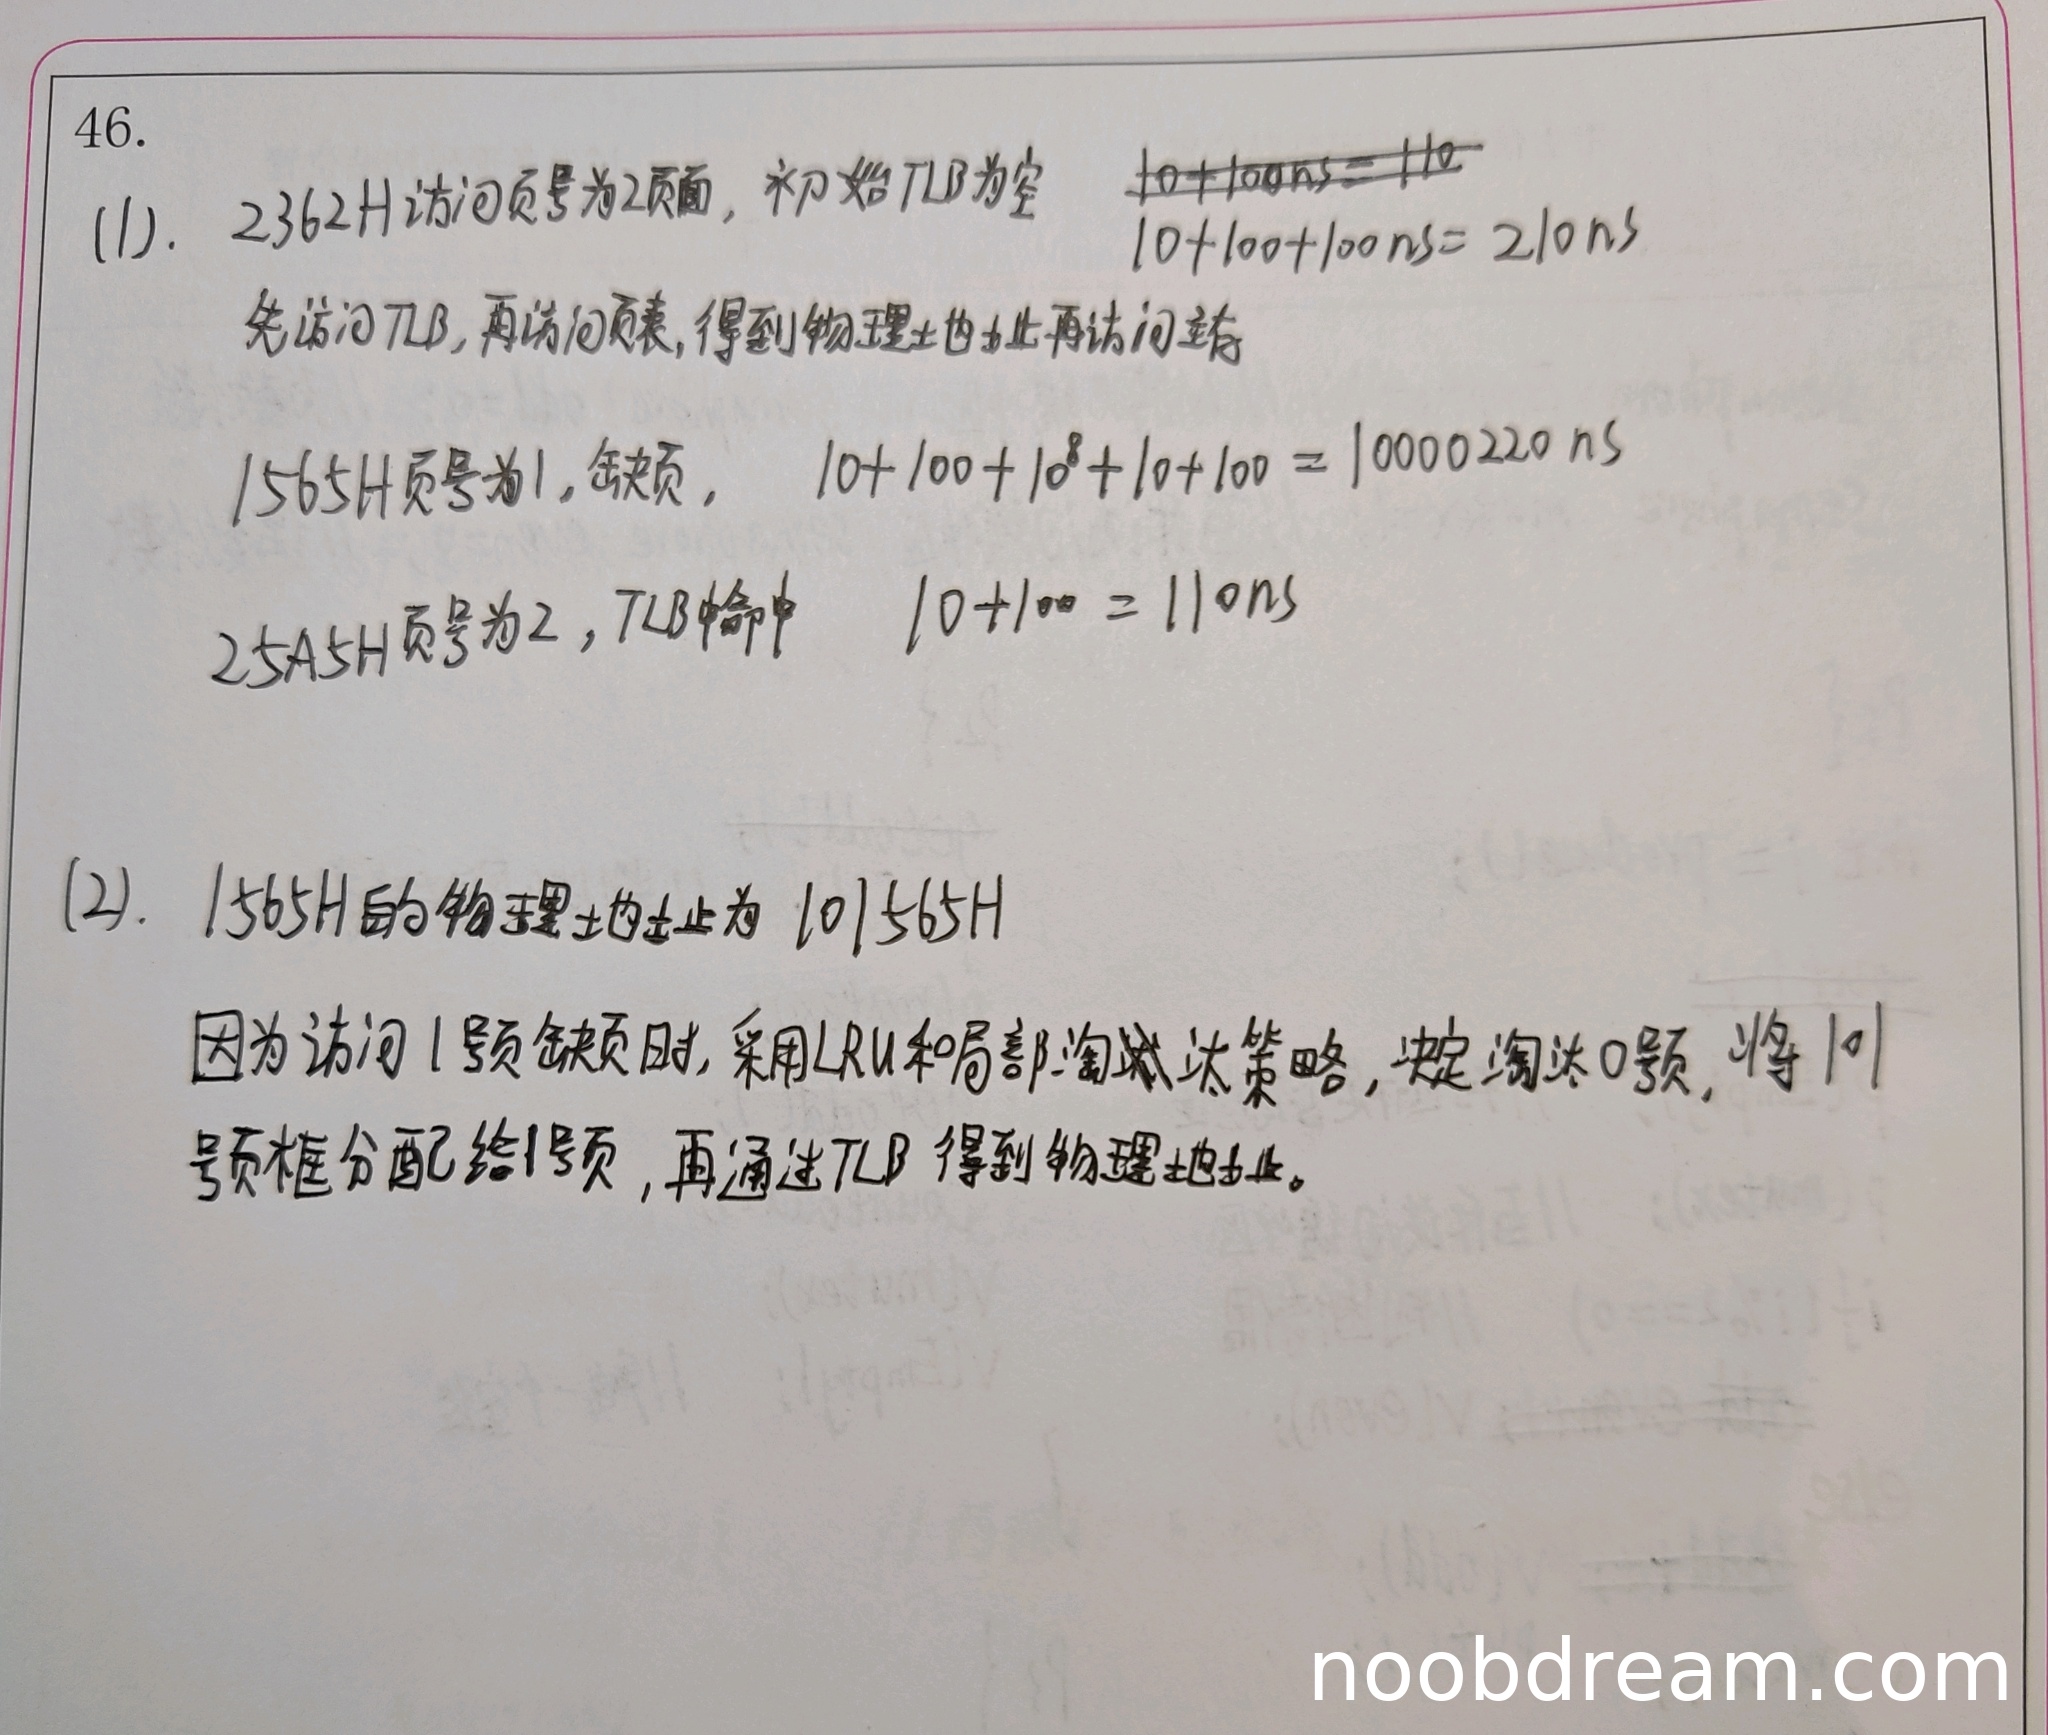 46.
(1). 2362H访问页号为2页面，初始TLB为空 10+100ns=110
10+100+100ns=210ns
先访问TLB,再访问页表,得到物理地址再访问主存
1565H页号为1,缺页, 10+100+10⁸+10+100=10000220ns
25A5H页号为2,TLB中命中 10+100=110ns
(2). 1565H的物理地址为 101565H
因为访问1号页缺页时,采用LRU和局部淘汰策略,决定淘汰0号页,将101
号页框分配给1号页,再通过TLB得到物理地址。
noobdream.com